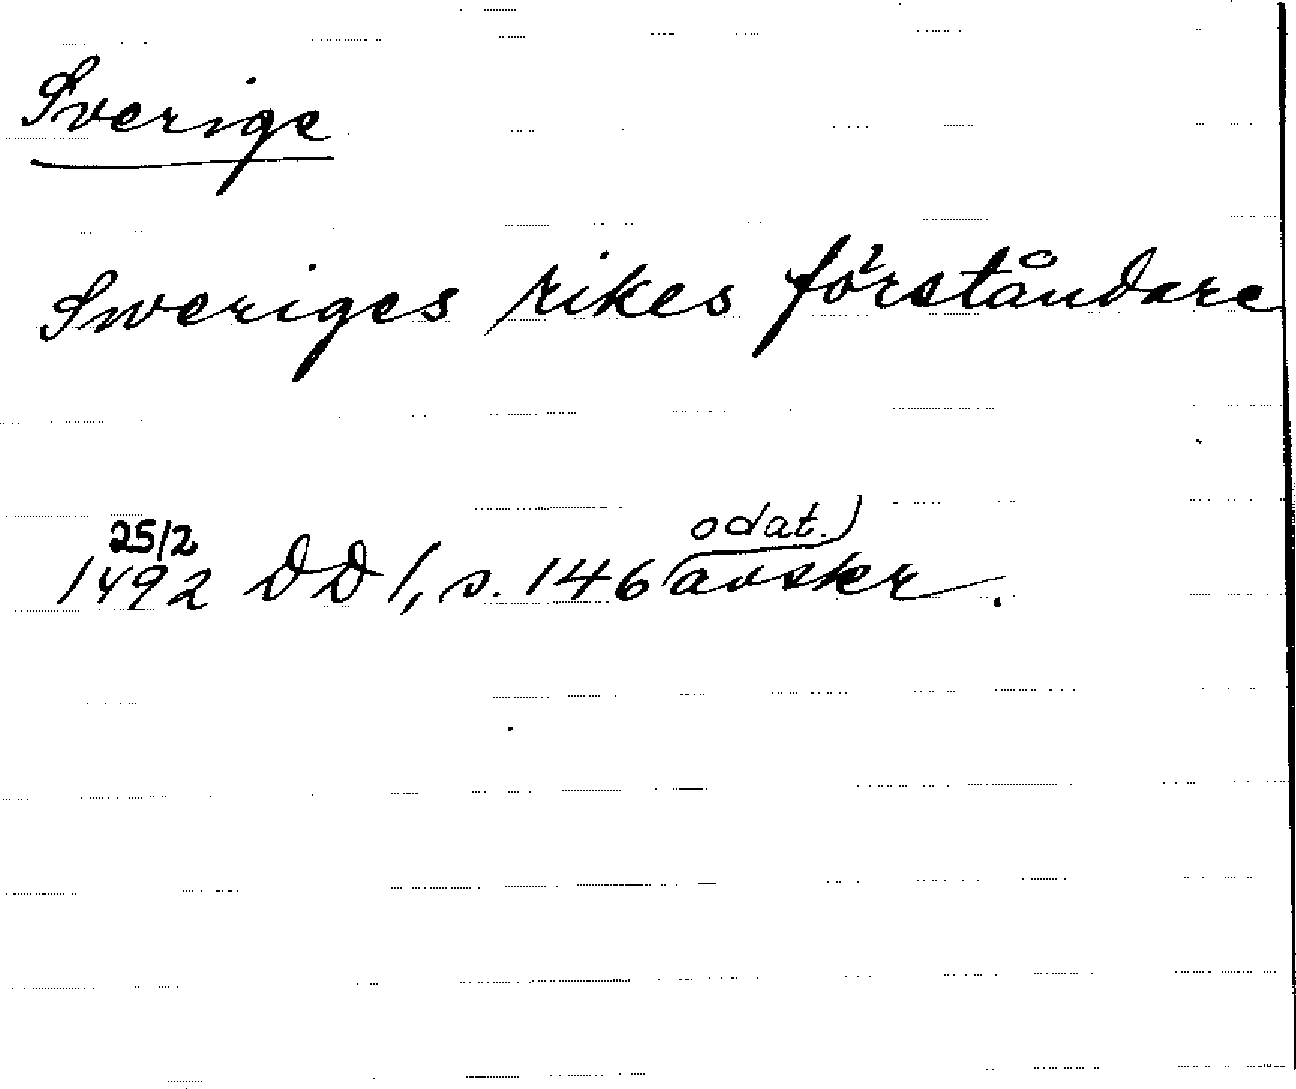 Sverige
Sweriges rikes förståndare
25/2
odat.)
1492 DD 1, s. 146 avskr.